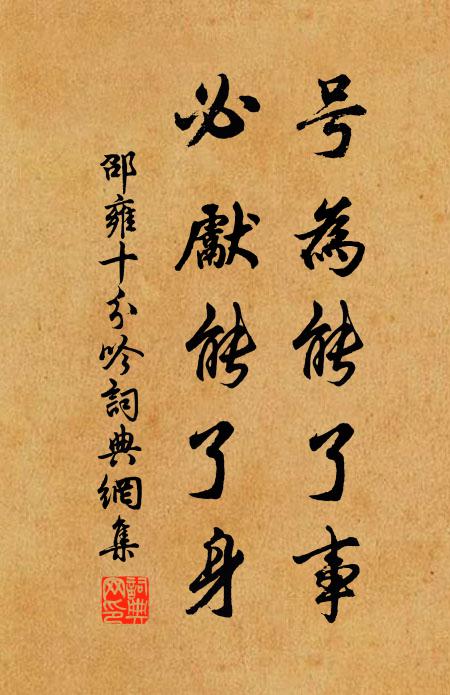 号為能了事
必獻能了身
邵雍十分吟詞典網集
詞典網印